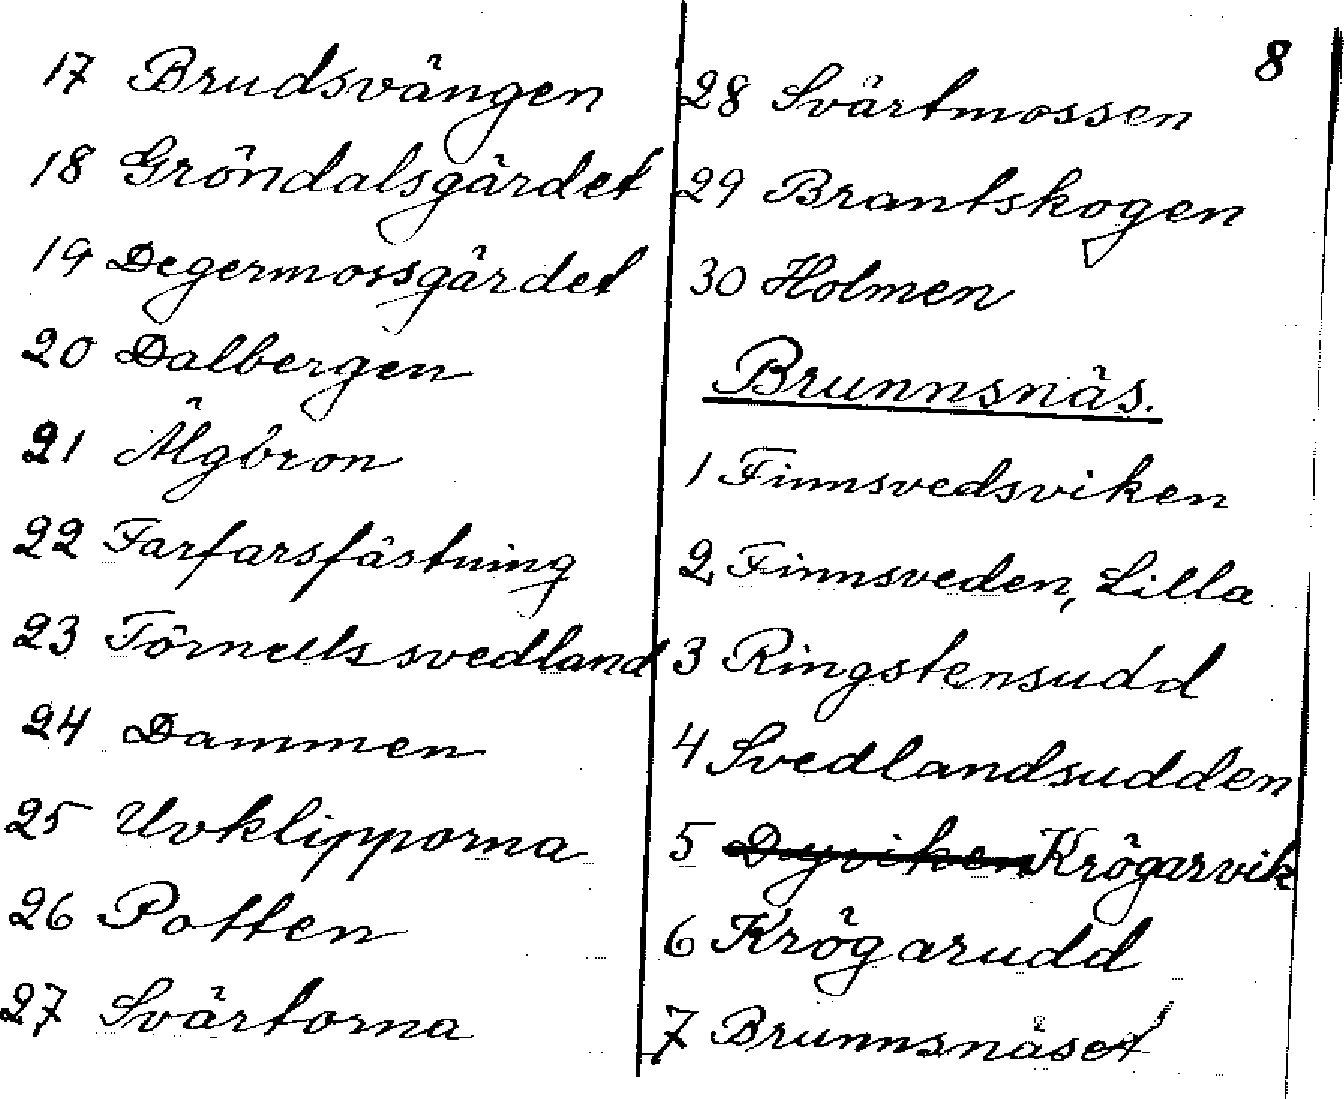 8
17 Brudsvängen
18 Gröndalsgärdet
19 Degermossgärdet
20 Dalbergen
21 Älgbron
22 Farfarsfästning
23 Törnells svedland
24 Dammen
25 Uvklipporna
26 Potten
27 Svärtorna
28 Svärtmossen
29 Brantskogen
30 Holmen
Brunnsnäs.
1 Finnsvedsviken
2, Finnsveden, Lilla
3 Ringstensudd
4 Svedlandsudden
5 Dyviken Krögarvik
6 Krögarudd
7 Brunnsnäset